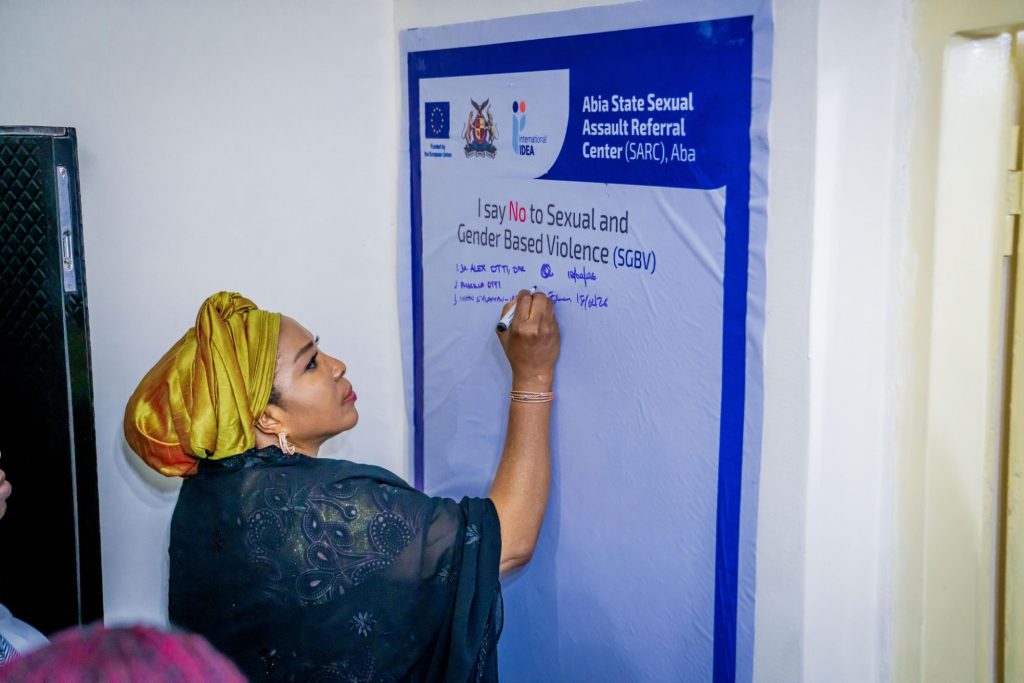 Funded by
the European Union
International
IDEA
Abia State Sexual
Assault Referral
Center (SARC), Aba
I say No to Sexual and
Gender Based Violence (SGBV)
1. ALEX OTTI,
2. OTTI
3.